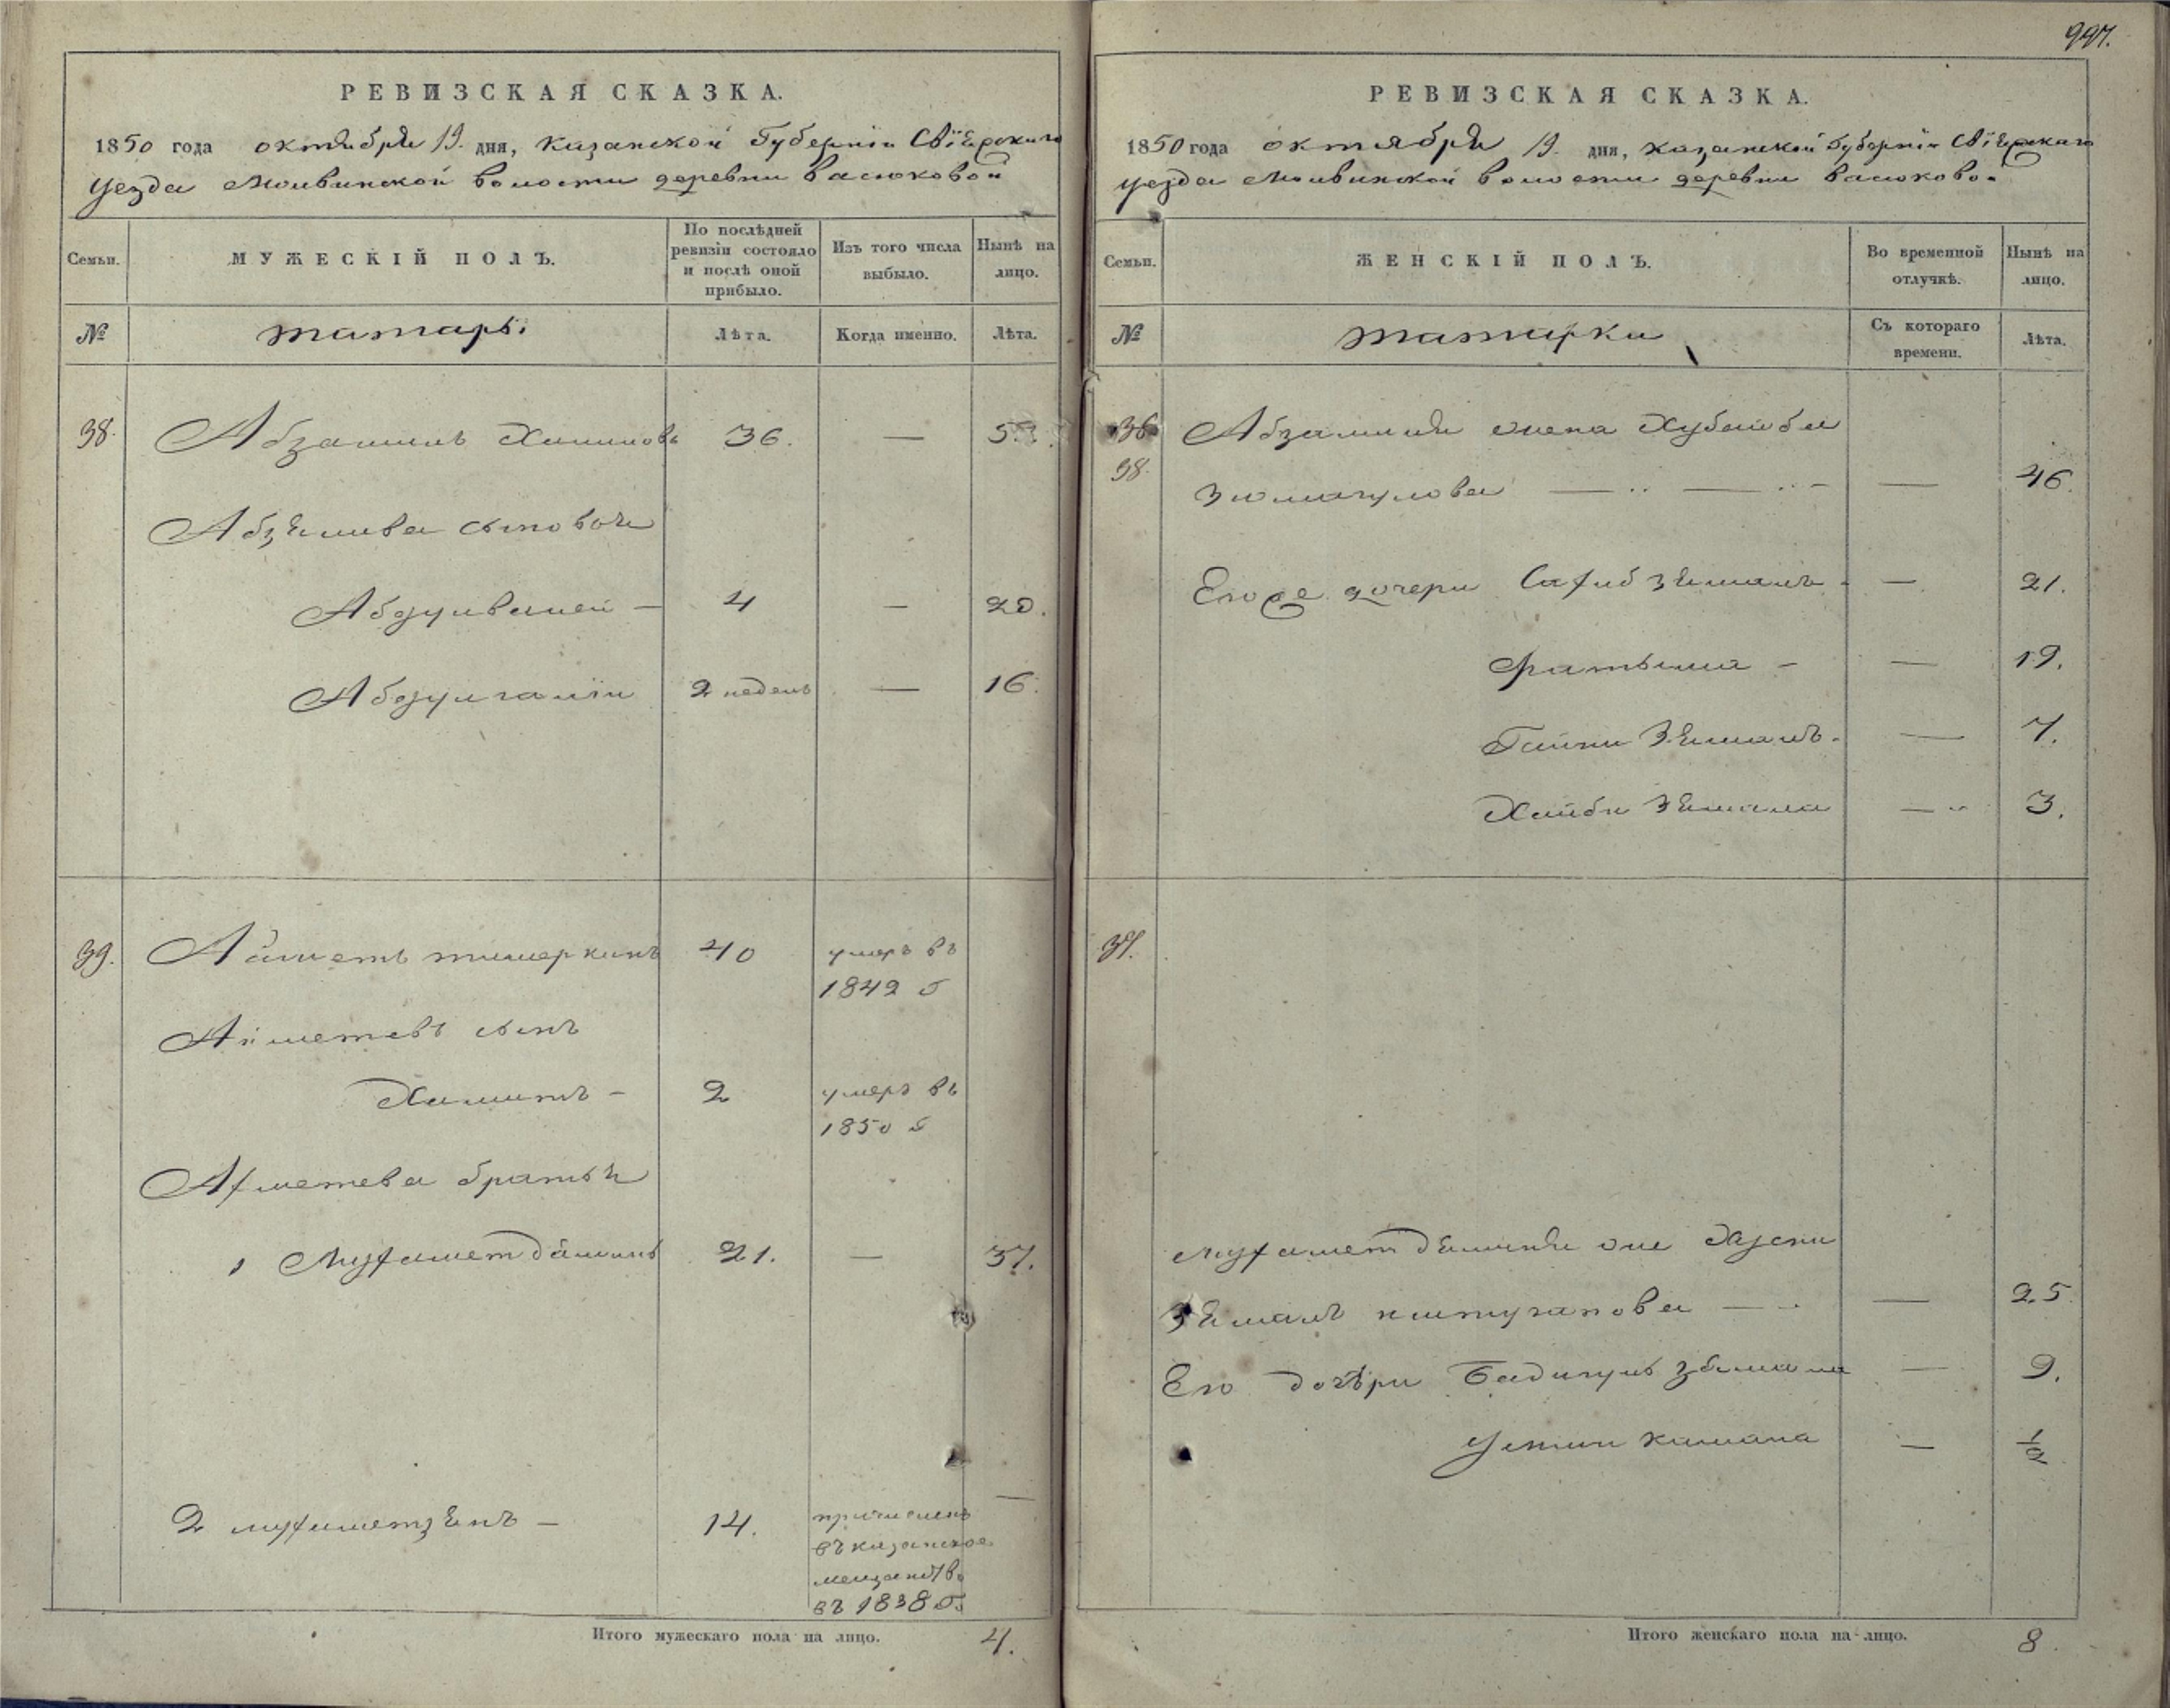 997.
РЕВИЗСКАЯ СКАЗКА.
1850 года октября 19. дня, Казанской Губернiи Свiяжскаго
уезда Молвинской волости деревни Васюковой
Семьи.
МУЖЕСКІЙ ПОЛЪ.
По послѣдней ревизіи состояло и послѣ оной прибыло.
Изъ того числа выбыло.
Нынѣ на лицо.
№
татары
Лѣта.
Когда именно.
Лѣта.
38. Абзалилъ Халиловъ 36. —
Абзялилва сыновья
Абдулвалей — 4 — 20.
Абдулгалiи 2 недель — 16.
39. Ахметь тимеркинъ 40 умеръ въ
1842 г
Ахметевъ сынъ
Хамитъ — 2 умеръ въ
1850 г
Ахметева братья
1 Мухаметдāминъ 21. — 37.
2 мухаметзянъ — 14. причисленъ —
въ казанское
мещанство
въ 1838 г.
Итого мужескаго пола на лицо. 4.
РЕВИЗСКАЯ СКАЗКА.
1850 года октября 19. дня, казанской Губернiи Свiяжскаго
уезда Молвинской волости деревни Васюково
Семьи.
ЖЕНСКІЙ ПОЛЪ.
Во временной отлучкѣ.
Нынѣ на лицо.
№
татарки
Съ котораго времени.
Лѣта.
36 Абзалиля жена Хубайба
38. Зюмагулова — — — 46.
Егоже дочери Сахибзямалъ — — 21.
Фатыма — — 19.
Гайни Зямалъ — — 7.
Хайби Зямала — 3.
37.
Мухаметдяминя
Зямалъ — — 25
Его дочѣри Бадигулъ зямала — 9.
камала — 1/2
Итого женскаго пола на-лицо. 8.